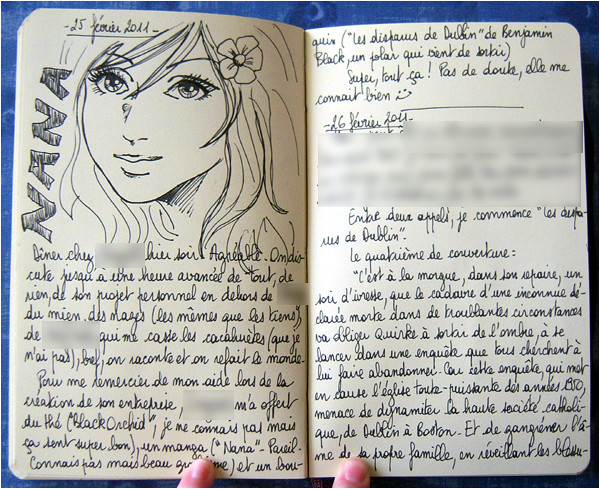 -25 février 2011-
NANA
Dîner chez hier soir. Agréable. On dis-
cute jusqu'à une heure avancée de tout, de
rien, de son projet personnel en dehors de
du mien. des nages (les mêmes que les tiens),
de qui me casse les cacahuètes (que je
n'ai pas), bref, on raconte et on refait le monde.
Pour me remercier de mon aide lors de la
création de son entreprise, m'a offert
du thé ("Black Orchid", je ne connais pas mais
ça sent super bon), un manga ("Nana" - Pareil-
connais pas mais beau graphisme) et un bou-
quin ("les disparus de Dublin" de Benjamin
Black, un polar qui vient de sortir)
Super, tout ça ! Pas de doute, elle me
connait bien
-26 février 2011-
Entre deux appels, je commence "les dispa-
rus de Dublin".
Le quatrième de couverture :
"C'est à la morgue, dans son repaire, un
soir d'ivresse, que le cadavre d'une inconnue dé-
clarée morte dans de troublantes circonstances
va obliger Quirke à sortir de l'ombre, à se
lancer dans une enquête que tous cherchent à
lui faire abandonner. Car cette enquête, qui met
en cause l'église toute-puissante des années 1950,
menace de dynamiter la haute société catholi-
que, de Dublin à Boston. Et de gangréner l'â-
me de sa propre famille, en réveillant les blessu-